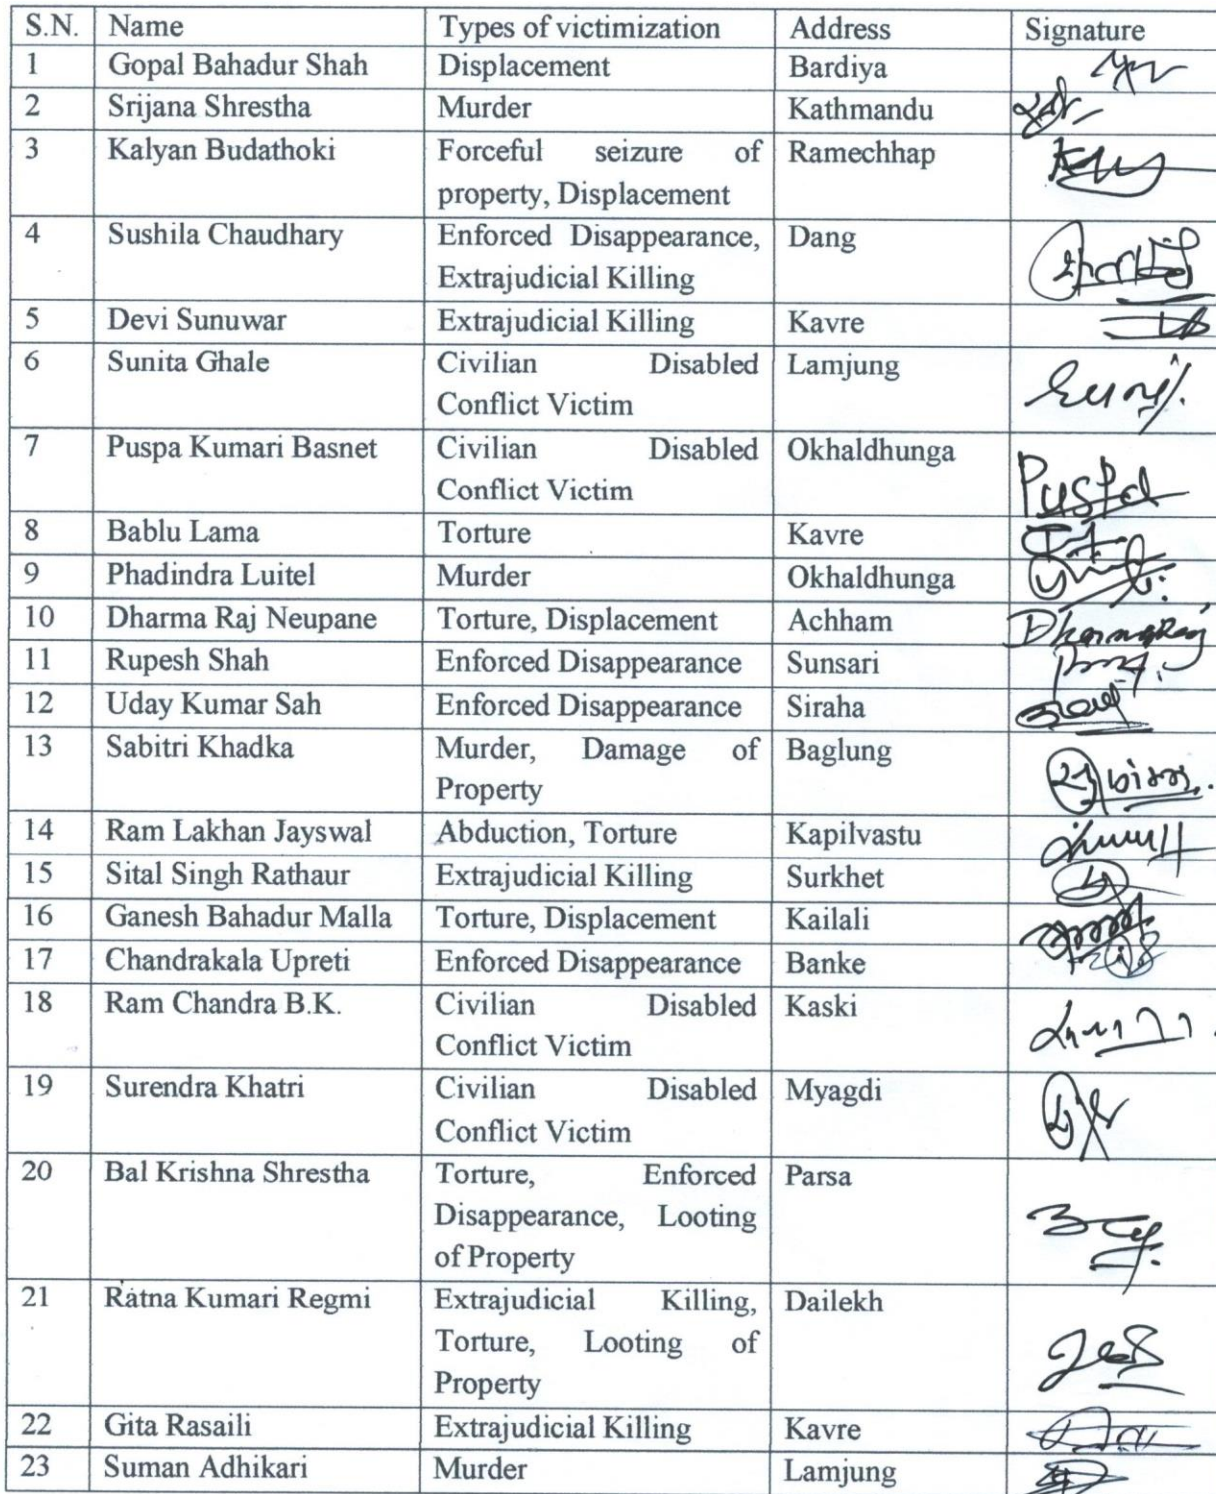 S.N. Name Types of victimization Address Signature
1 Gopal Bahadur Shah Displacement Bardiya
2 Srijana Shrestha Murder Kathmandu
3 Kalyan Budathoki Forceful seizure of Ramechhap
property, Displacement
4 Sushila Chaudhary Enforced Disappearance, Dang
Extrajudicial Killing
5 Devi Sunuwar Extrajudicial Killing Kavre
6 Sunita Ghale Civilian Disabled Lamjung
Conflict Victim
7 Puspa Kumari Basnet Civilian Disabled Okhaldhunga
Conflict Victim Puspa
8 Bablu Lama Torture Kavre
9 Phadindra Luitel Murder Okhaldhunga
10 Dharma Raj Neupane Torture, Displacement Achham DharmaRaj
11 Rupesh Shah Enforced Disappearance Sunsari
12 Uday Kumar Sah Enforced Disappearance Siraha
13 Sabitri Khadka Murder, Damage of Baglung
Property
14 Ram Lakhan Jayswal Abduction, Torture Kapilvastu
15 Sital Singh Rathaur Extrajudicial Killing Surkhet
16 Ganesh Bahadur Malla Torture, Displacement Kailali
17 Chandrakala Upreti Enforced Disappearance Banke
18 Ram Chandra B.K. Civilian Disabled Kaski
Conflict Victim
19 Surendra Khatri Civilian Disabled Myagdi
Conflict Victim
20 Bal Krishna Shrestha Torture, Enforced Parsa
Disappearance, Looting
of Property
21 Ratna Kumari Regmi Extrajudicial Killing, Dailekh
Torture, Looting of
Property
22 Gita Rasaili Extrajudicial Killing Kavre
23 Suman Adhikari Murder Lamjung